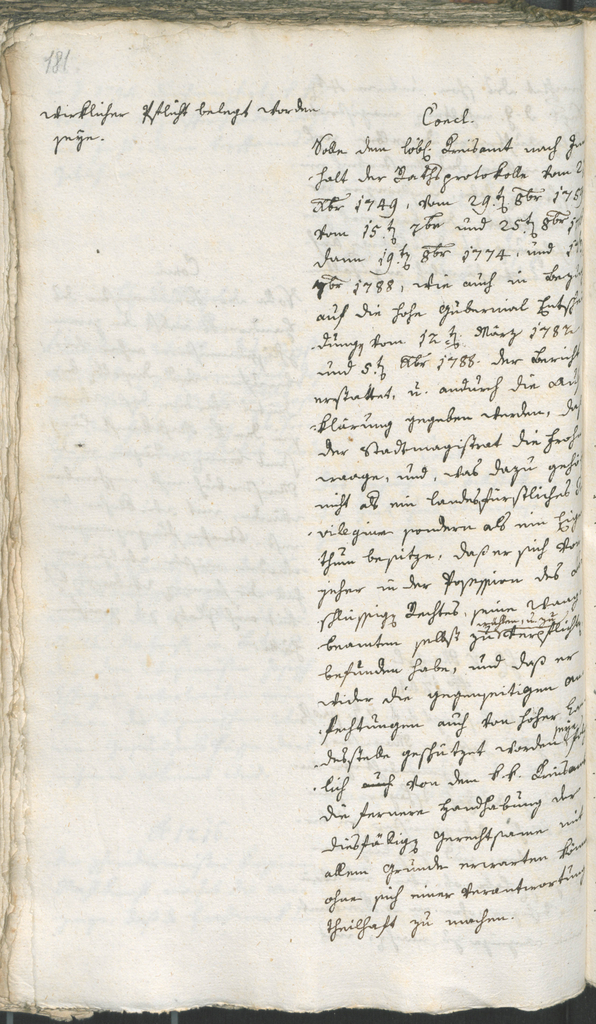 181.
wirklicher Pflicht belegt worden
seye.
Concl.
Solle dem löbl. Kreisamt nach In
halt der Rathsprotokolle vom 2
Xbr 1749, vom 29.t 8br 175
vom 15.t 7br und 25.t 8br
dann 19.t 8br 1774, und
7br 1788, wie auch in Bezug
auf die hohe Gubernial Entschei
dung vom 12.t März 1787
und 5.t Xbr 1788. der Bericht
erstattet, u. andurch die Auf
klärung gegeben werden, daß
der Stadtmagistrat die Frohn
waage, und, was dazu gehö
nicht als ein landesfürstliches
vilegium sondern als ein Eig
thum besitze, daß er sich von
jeher in der Possession des
schlüssigen Rechtes, seine Waag
beamten selbst zu wählen, u. zu verpflichten
befunden habe, und daß er
wider die gegenseitigen An
fechtungen auch von hoher Lan
desstelle geschützet worden seye
lich auch von dem k. k. Kreisamt
die fernere Handhabung der
diesfälligen Gerechtsame mit
allem Grunde erwarten könne
ohne sich einer Verantwortung
theilhaft zu machen.